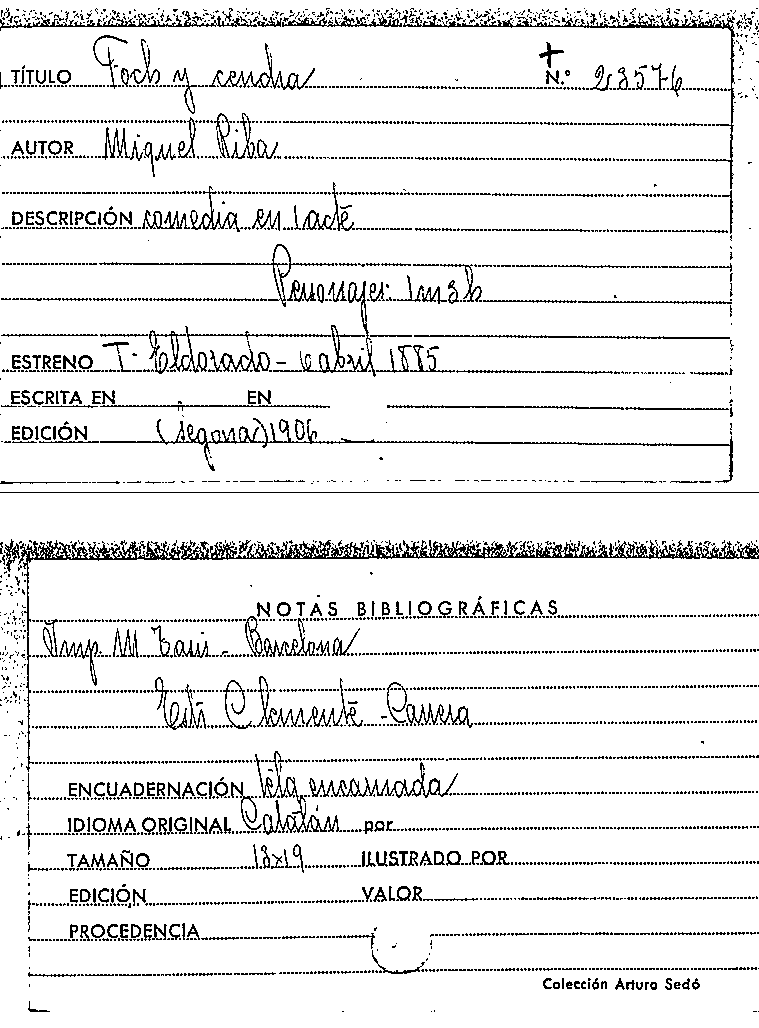 TÍTULO Foch y cendra + N.º 23576
AUTOR Miquel Riba
DESCRIPCIÓN comedia en 1 acte
Personajes: 1m 3h
ESTRENO T. Eldorado - 6 abril 1885
ESCRITA EN EN
EDICIÓN (segona) 1906
NOTAS BIBLIOGRÁFICAS
Imp M Barcelona
Clemente
ENCUADERNACIÓN tela encarnada
IDIOMA ORIGINAL Catalán por
TAMAÑO 13x19 ILUSTRADO POR
EDICIÓN VALOR
PROCEDENCIA
Colección Arturo Sedó